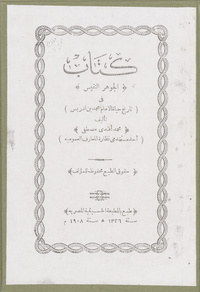 كتاب
﴿ الجوهر النفيس ﴾
في
( تاريخ حياة الامام محمد بن ادريس )
تأليف
﴿ محمد أفندي مصطفى ﴾
( أحد مستخدمي نظارة المعارف العمومية )
﴿ حقوق الطبع محفوظة للمؤلف ﴾
﴿ طبع بالمطبعة الحسينية المصرية ﴾
سنة ١٣٢٦ ه سنة ١٩٠٨ م